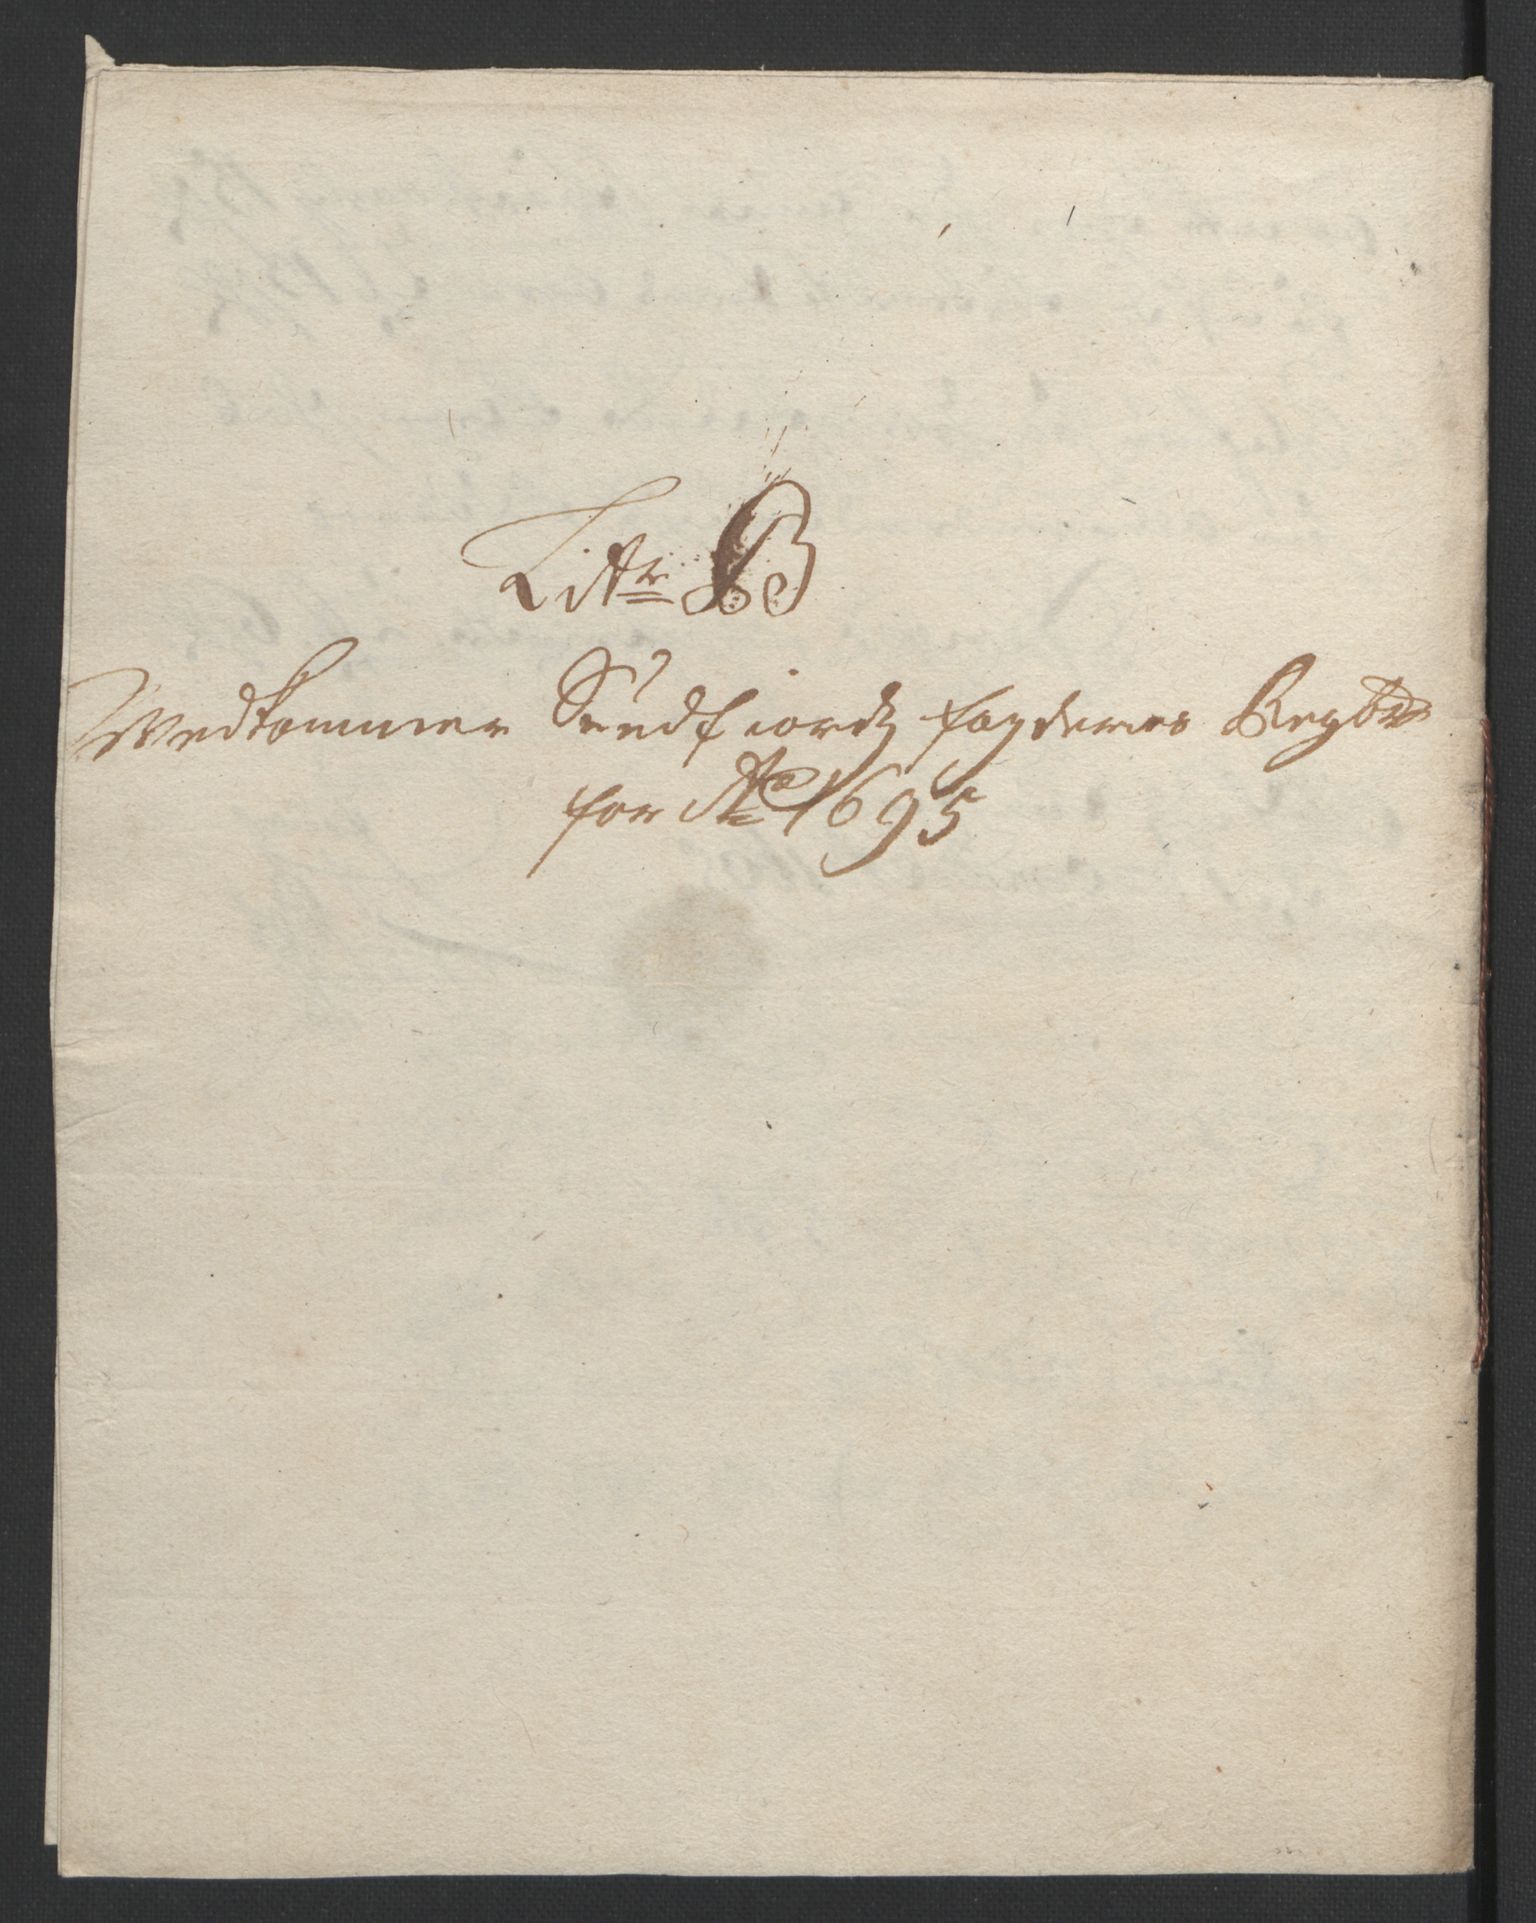 Litr B
Wedkommer Sundfiords fogderies Regsk:
for Ao 1695